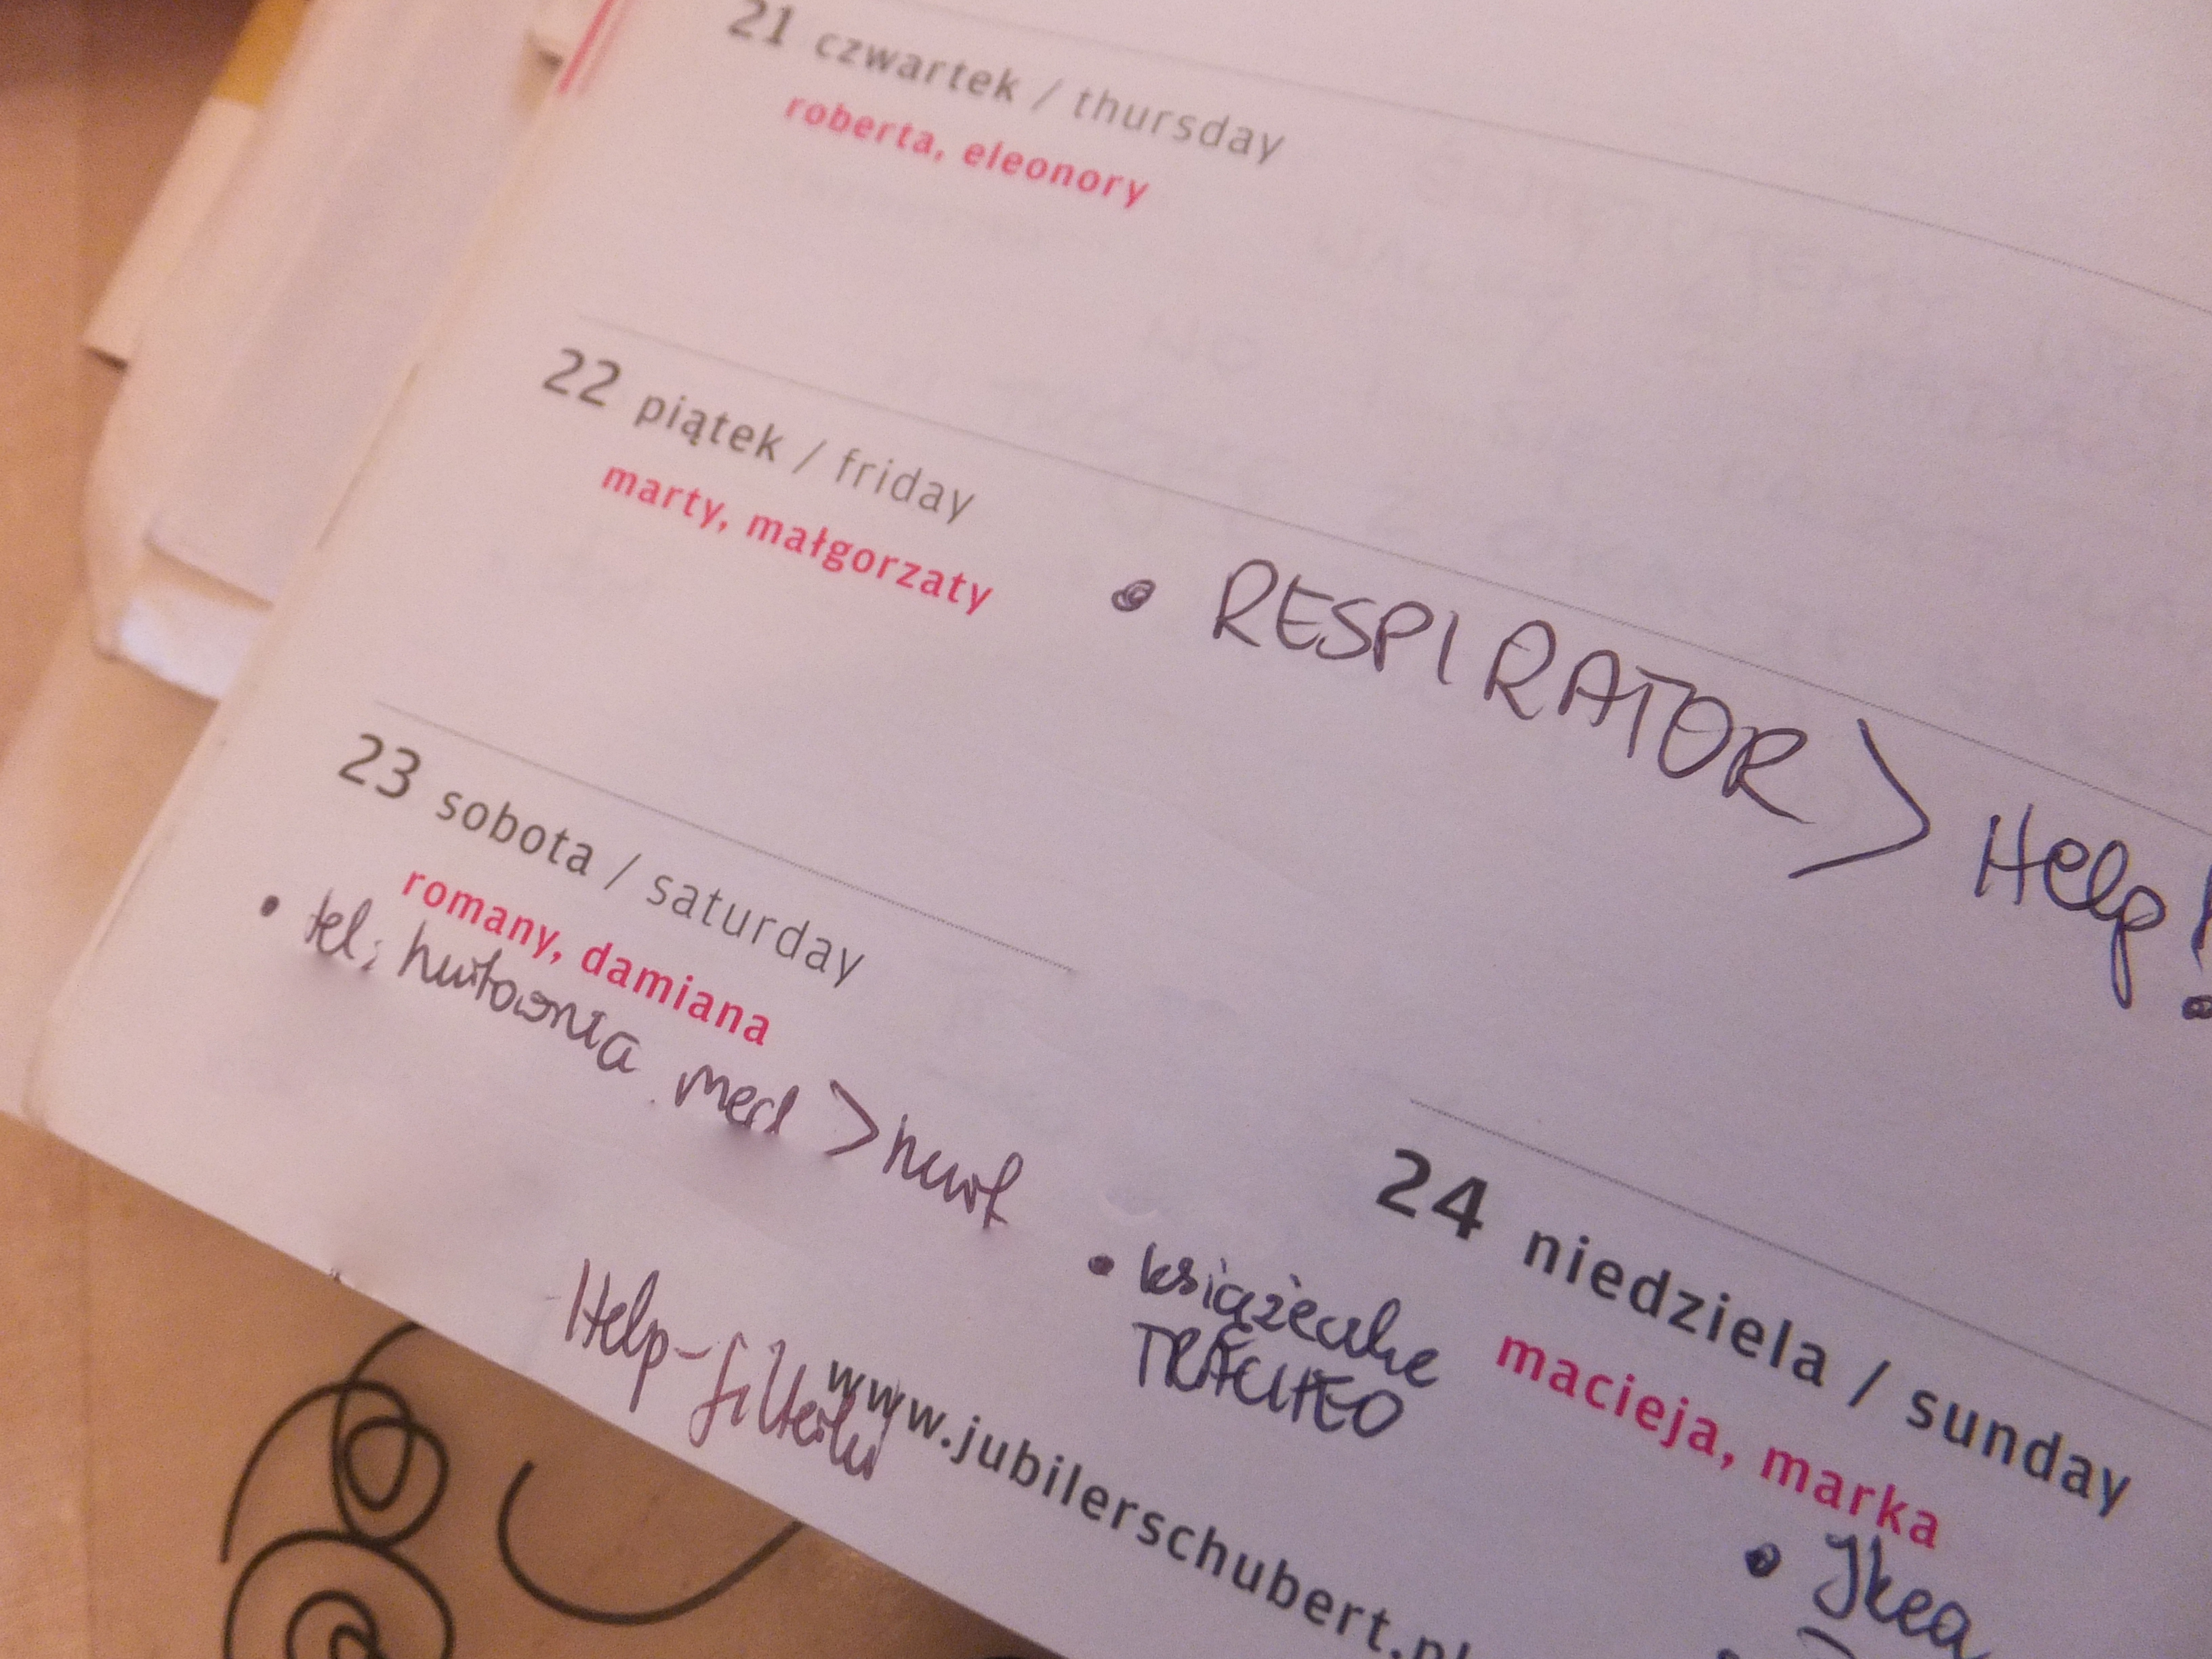 21 czwartek / thursday
roberta, eleonory
22 piątek / friday
marty, małgorzaty
• RESPIRATOR > Help!
23 sobota / saturday
romany, damiana
• tel; hurtownia med > hurt
Help-filterki
• książeczke
TRACHEO
24 niedziela / sunday
macieja, marka
• Ikea
www.jubilerschubert.pl